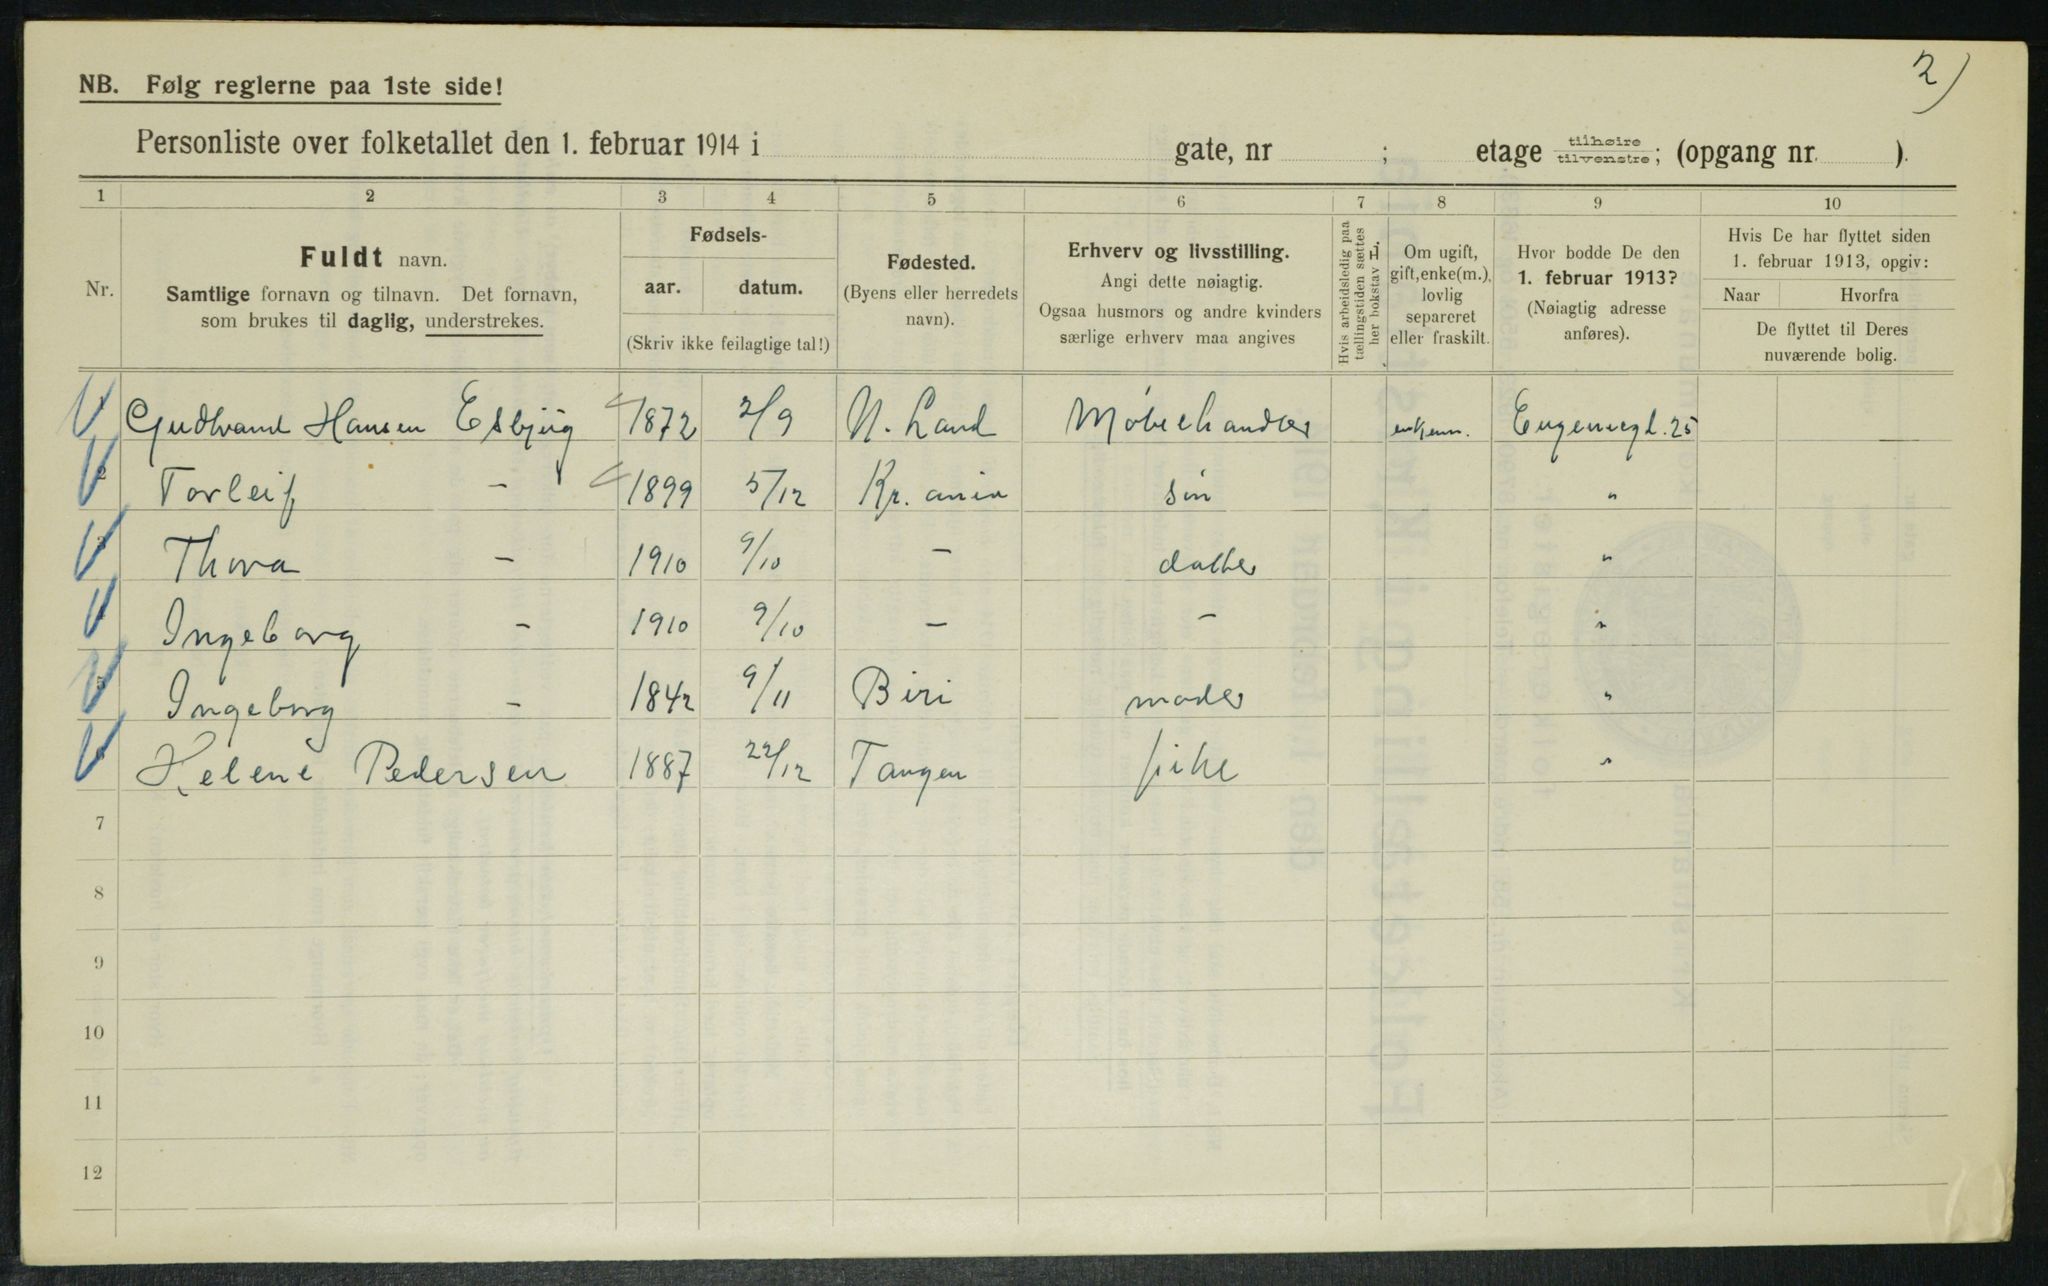 2)
NB. Følg reglerne paa 1ste side!
Personliste over folketallet den 1. februar 1914 i gate, nr ; etage tilhøire tilvenstre; (opgang nr. ).
1 2 3 4 5 6 7 8 9 10
Nr.
Fuldt navn.
Samtlige fornavn og tilnavn. Det fornavn,
som brukes til daglig, understrekes.
Fødsels-
aar. datum.
(Skriv ikke feilagtige tal!)
Fødested.
(Byens eller herredets
navn).
Erhverv og livsstilling.
Angi dette nøiagtig.
Ogsaa husmors og andre kvinders
særlige erhverv maa angives
Hvis arbeidsledig paa
tællingstiden sættes
her bokstav L.
Om ugift,
gift, enke(m.),
lovlig
separeret
eller fraskilt.
Hvor bodde De den
1. februar 1913?
(Nøiagtig adresse
anføres).
Hvis De har flyttet siden
1. februar 1913, opgiv:
Naar Hvorfra
De flyttet til Deres
nuværende bolig.
1 Gudbrand Hansen Esbjug 1872 2/9 N. Land Møbelhandler enkem. Eugeniegt. 25
2 Torleif - 1899 5/12 Kr. ania søn "
3 Thora - 1910 9/10 - datter "
4 Ingeborg - 1910 9/10 - - "
5 Ingeborg - 1842 9/11 Biri moder "
6 Helene Pedersen 1887 22/12 Tangen pike "
7
8
9
10
11
12